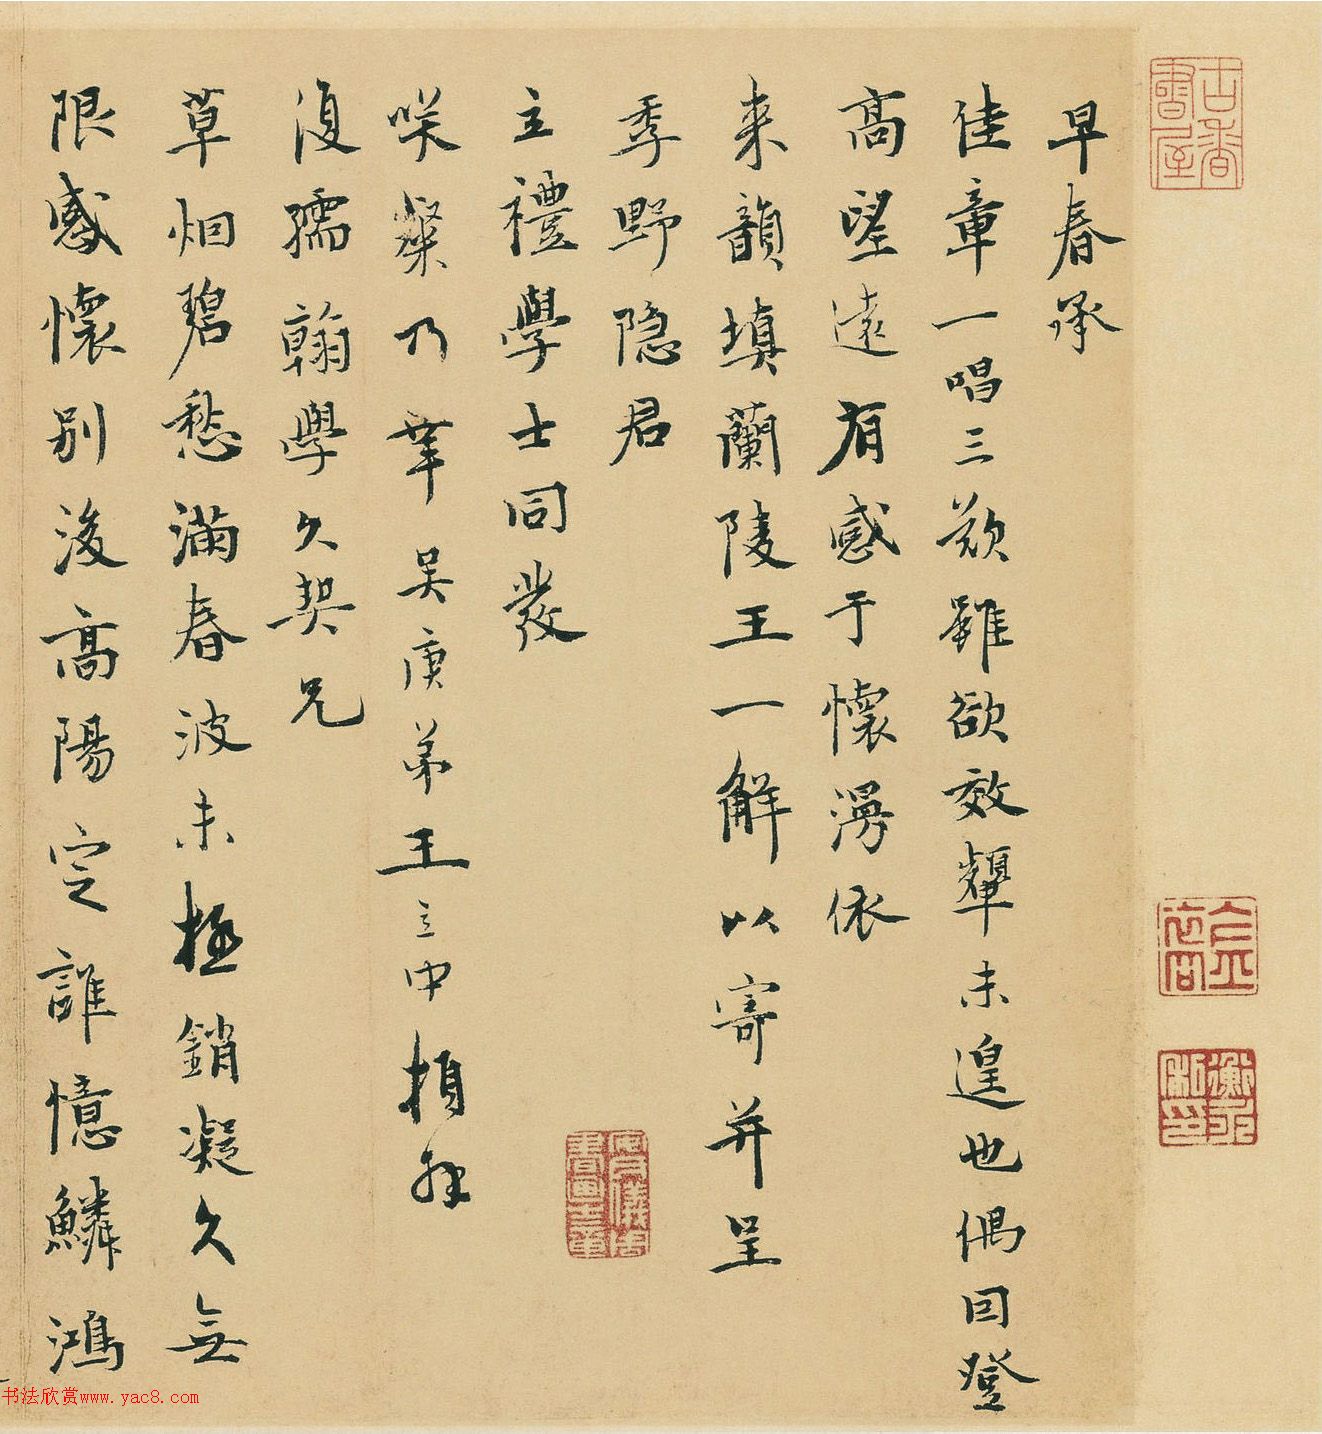 古香書屋
早春承
佳章一唱三歎雖欲效顰未遑也偶因登
高望遠有感于懷漫依
来韻填蘭陵王一解以寄并呈
季野隐君
立禮學士同發
咲粲乃幸吴庚弟王立中頓拜
復孺翰學久契兄
草烟碧愁滿春波未極銷凝久無
限感懷别後高陽定誰憶鱗鴻
安氏儀周書畫之章
书法欣赏www.yac8.com